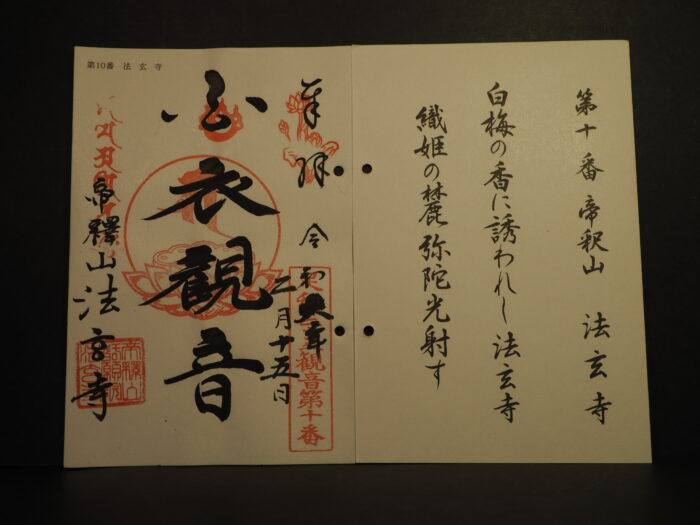 第十番 帝釈山 法玄寺
白梅の香に誘われし法玄寺
織姫の麓弥陀光射す
第10番 法玄寺
奉拝 令和 年
二月十五日
觀音第十番
白衣觀音
帝釋山法玄寺